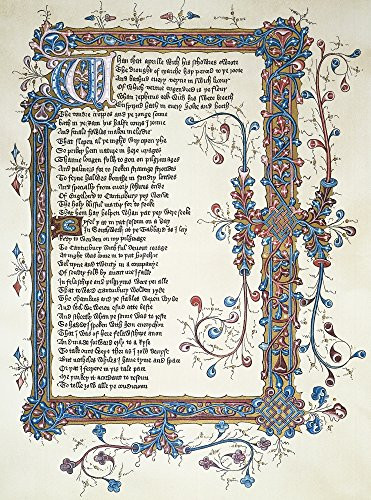 Whan that aprille with his showres swoote
The drought of marche haþ perced to þe roote
And bathud every veyne in swich licour
Of which vertue engendred is þe flour
Whan zephirus eek with his swete breeth
Enspyred hath in every holte and heeth
The tendre croppes and þe yonge sonne
Hath in þe Ram his halfe cours I ronne
And smale fowles maken melodie
That slepen al þe night wiþ open yhe
So priketh hem nature in here corages
Thanne longen folk to gon on pilgrimages
And palmers for to seeken straunge strondes
To ferne halwes kouthe in sondry londes
And specially from every schires ende
Of Engelond to Canturbury þey wende
The holy blisful martir for to seeke
That hem haþ holpen whan þat þey were seeke
Byfel þat in þat sesoun on a day
In Southwerk at þe Tabbard as I lay
Redy to wenden on my pilgrimage
To Canturbury with ful devout corage
At night was come in to þat hostelrie
Wel nyne and twenty in a companye
Of sondry folk by aventure I falle
In felaschipe and pilgryms were þei alle
That toward Canturbury wolden ryde
The chambres and þe stables weren wyde
And wel we weren esud atte beste
And schortly whan þe sonne was to reste
So hadde I spoken with hem everychon
That I was of here felaweschipe anon
And made forward erly to aryse
To take oure weye ther as I yow devyse
But natheles whiles I have tyme and space
Or þat I ferþere in þis tale pace
Me þinkeþ it acordant to resoun
To telle yow alle þe condicioun